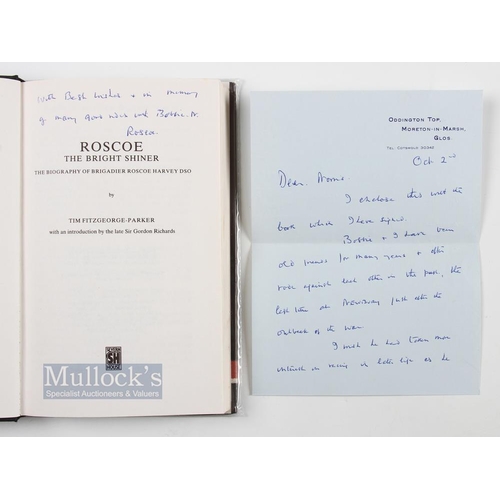 With Best wishes + in memory
of many good rides with Bobbie.
Roscoe
ROSCOE
THE BRIGHT SHINER
THE BIOGRAPHY OF BRIGADIER ROSCOE HARVEY DSO
by
TIM FITZGEORGE-PARKER
with an introduction by the late Sir Gordon Richards
SH
Mullock's
Specialist Auctioneers & Valuers
ODDINGTON TOP,
MORETON-IN-MARSH,
GLOS.
TEL. COTSWOLD 30346
Oct 2nd
Dear
I enclose this with the
book which I have signed.
Bobbie + I have been
old friends for many years + often
rode against each other in the past, the
last time at Newbury just after the
outbreak of the war.
I wish he had been more
in racing in later life as he